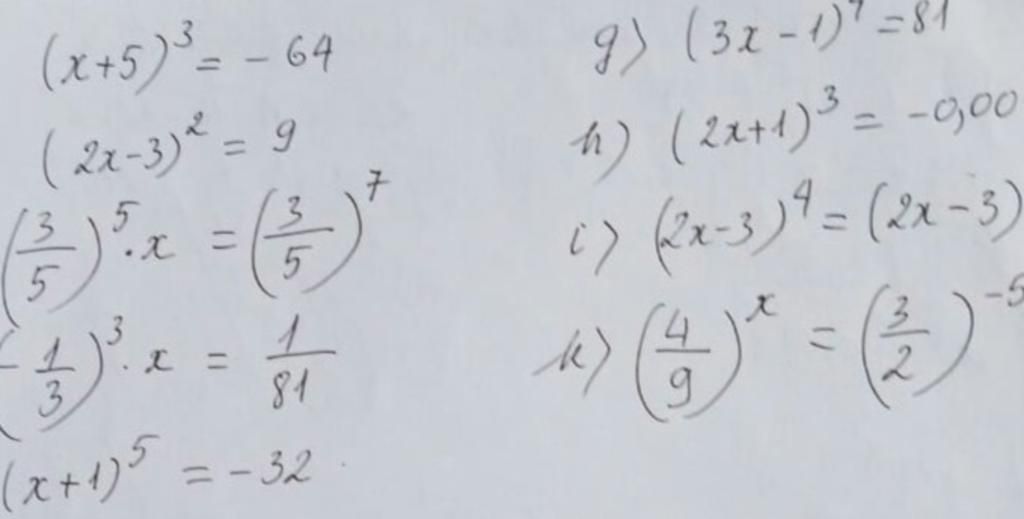 (x+5)³ = -64
(2x-3)² = 9
(3/5)⁵ · x = (3/5)⁷
(-1/3)³ · x = 1/81
(x+1)⁵ = -32
g) (3x-1)⁴ = 81
h) (2x+1)³ = -0,00
i) (2x-3)⁴ = (2x-3)
k) (4/9)ˣ = (3/2)⁻⁵